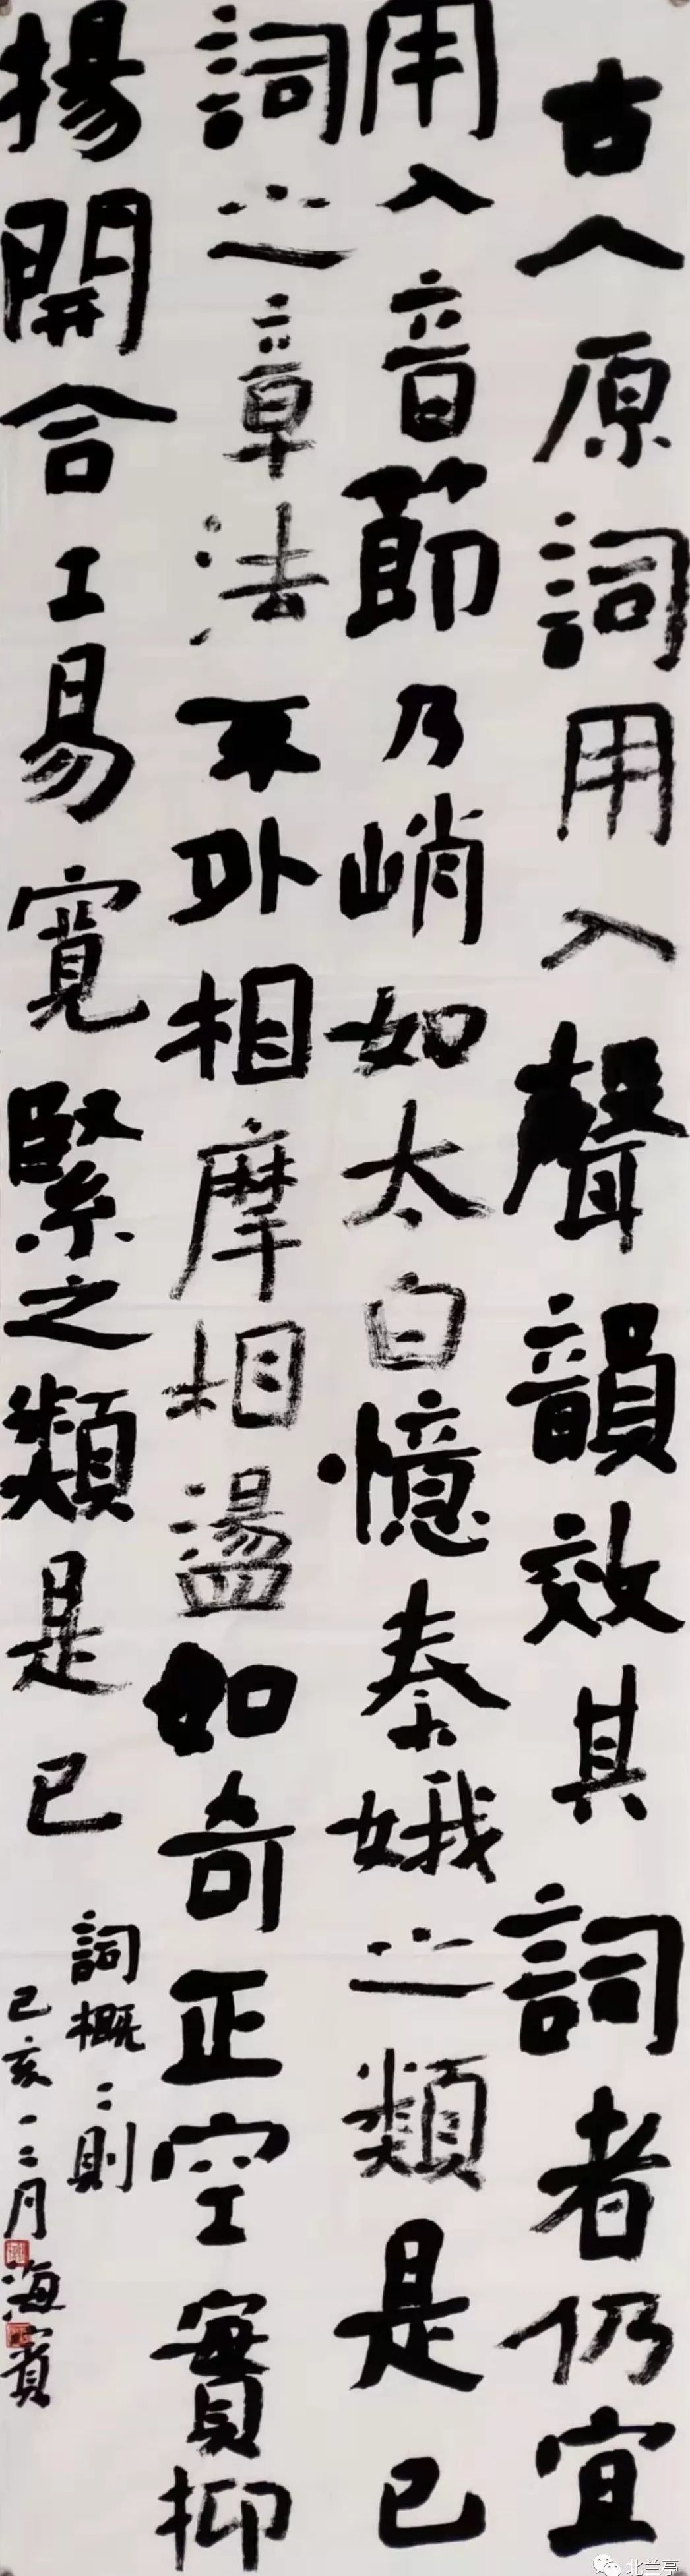 古人原詞用入聲韻效其詞者仍宜
用入音節乃峭如太白憶秦娥之類是已
詞之章法不外相摩相盪如奇正空實抑
揚開合工易寬緊之類是已
詞概二則
己亥一二月海賓
北兰亭